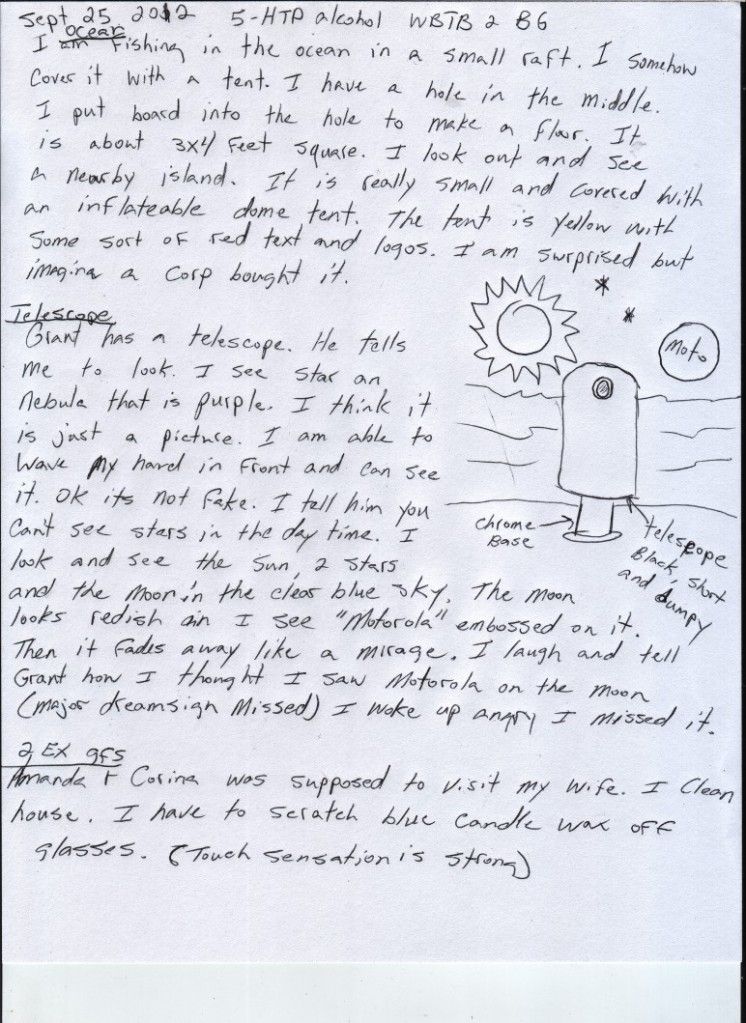 Sept 25 2012 5-HTP alcohol WBTB 2 B6
Ocean
I am fishing in the ocean in a small raft. I somehow
Cover it with a tent. I have a hole in the middle.
I put board into the hole to make a floor. It
is about 3x4 feet square. I look out and see
a nearby island. It is really small and covered with
an inflateable dome tent. The tent is yellow with
Some sort of red text and logos. I am surprised but
imagine a corp bought it.
Telescope
Grant has a telescope. He tells
me to look. I see star an
Nebula that is purple. I think it
is just a picture. I am able to
wave my hand in front and can see
it. Ok its not fake. I tell him you
Cant see stars in the day time. I
look and see the Sun, 2 stars
and the Moon in the clear blue sky. The moon
looks redish an I see "Motorola" embossed on it.
Then it fades away like a mirage. I laugh and tell
Grant how I thought I saw Motorola on the moon
(major dreamsign Missed) I woke up angry I missed it.
Moto
Chrome
Base
telescope
Black, short
and dumpy
2 Ex gfs
Amanda + Corina was supposed to visit my wife. I Clean
house. I have to scratch blue Candle wax off
glasses. (Touch sensation is strong)